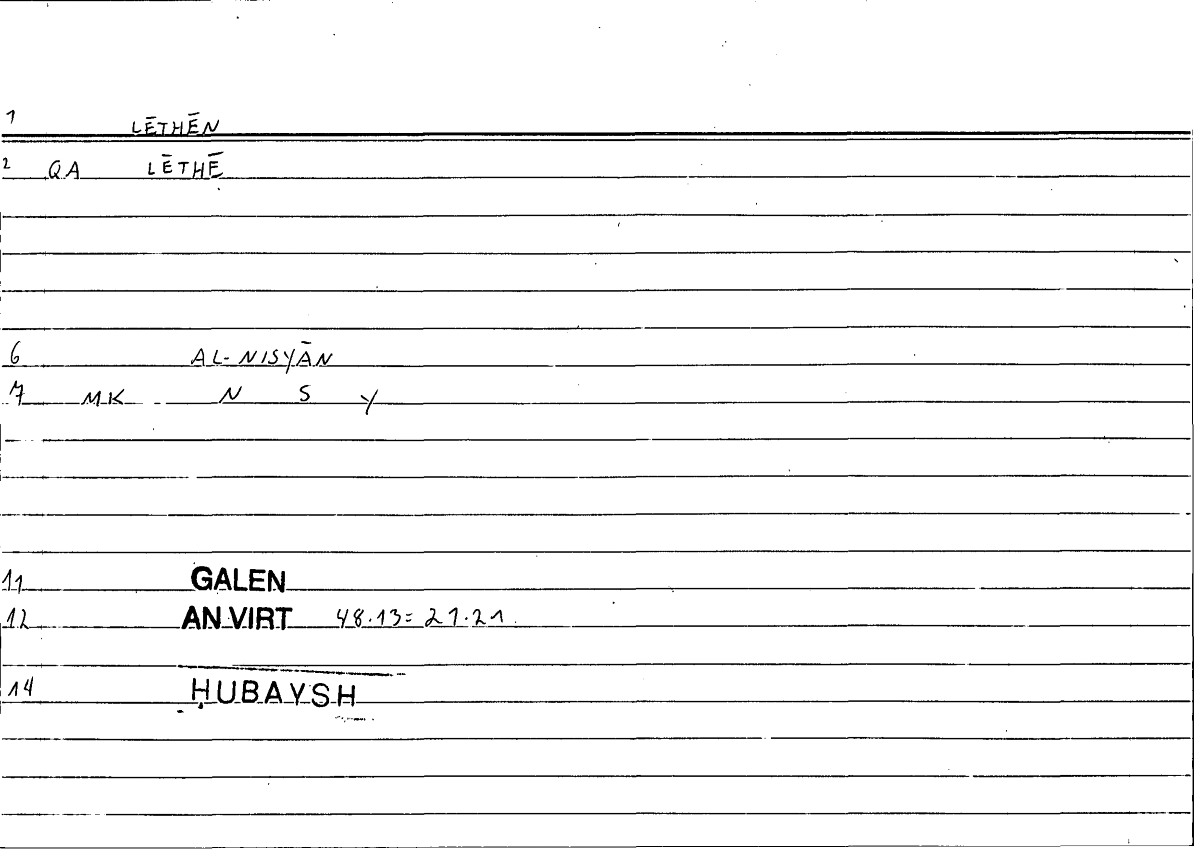 1 LĒTHĒN
2 QA LĒTHĒ
6 AL-NISYĀN
7 MK N S Y
11 GALEN
12 AN VIRT 48.13=21.21
14 ḤUBAYSH